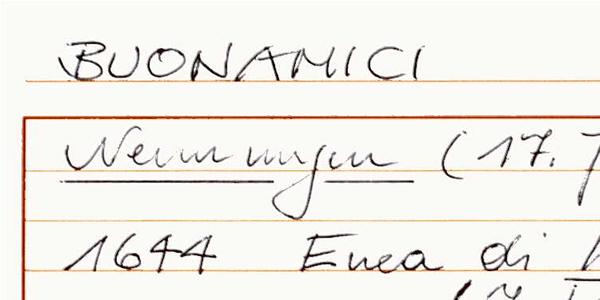 BUONAMICI
Nennungen (17.
1644 Enea di